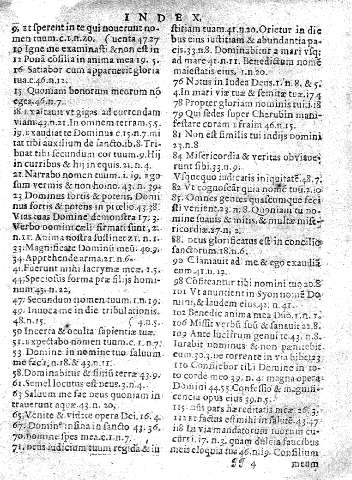 INDEX.
9. 21 sperent in te qui nouerunt no-
men tuum. c.1.n.20. (uenta 47.27
10 Igne me examinasti & non est in
11 Ponā cōsilia in anima mea 19. 5.
16 Satiabor cum apparuerit gloria
tua. 46.n.12.
15 Quoniam bonorum meorum nō
eges. 46.n.7.
18 Exaltauit vt gigas ad currendam
viam. 43.n.21. In omnem terrā. 45.
19. Exaudiat te Dominus c.15.n.7. mi
tat tibi auxilium de sancto. ib. 8. Tri-
buat tibi secundum cor tuum. 9. Hi
in curribus & hi in equis. 21. n.4.
21. Narrabo nomen tuum. 1. 19. ego
sum vermis & non homo. 43. n. 39.
23 Dominus fortis & potens, Domi
nus fortis & potens in prælio. 43. 38
Vias tuas Domine demonstra 17. 3.
Verbo nomini cæli formati sunt, 2.
n. 11. Anima nostra sustinet 21. n.
33. Magnificate Dominū mecū. 40. 9.
34. Apprehende arma. 21. n.
41. Fuerunt mihi lacrymæ meæ. 2. 5.
44. Speciosus forma præ filijs homi-
num. 43. n. 22,
47. Secundum nomen tuum. 1. n. 19.
49. Inuoca me in die tribulationis.
48. n. 15. (4. n. 5.
50 Incerta & oculta sapientiæ tuæ
51. expectabo nomen tuum. c. 1. n. 7:
53 Domine in nomine tuo saluum
me fac. 1. n. 18. & 43. n. 15.
58. Dominabitur & finiū terræ 43. 9.
61. Semel locutus est Deus. 3. n. 4.
63 Saluum me fac Deus quoniam in
trauerunt aquæ 43. n. 20.
65. Venite & videte opera Dei. 16. 4.
67. Dominus in sina in sancto 43. 36.
70. nomine spes mea. c. 1. n. 7.
71. Deus iudicium tuum regida & iu
stitiam tuam. 41. n. 20. Orietur in die
bus eius iustitiam & abundantia pa-
cis. 33. n. 8. Dominabitur a mari vsq;
ad mare 41. n. 11. Benedictum nomē
maiestatis eius. 1. n. 20.
76 Natus in Iudea Deus. 1. n. 8. & 5.
4. In mari viæ tuæ & semitæ tuæ. 17. 4
78 Propter gloriam nominis tui. 18
79 Qui sedes super Cherubin mani-
festare coram 1 fraim 46. n. 15.
81 Non est similis tui in dijs domini
23. n. 8
84 Misericordia & veritas obuiaue
runt sibi. 33. n. 9.
Vsquequo iudicatis in iniquitate. 48. 7.
82 Vt cognoscāt quia nomē tuū. 2. 10
85. Omnes gentes quascumque feci
sti venient. 25. n. 8. Quoniam tu do-
mine suauis & mitis, & multæ mise-
ricordiæ.
88. Deus glorificatus est in concilio
sanctorum. 18. n. 6.
91 Clamauit ad me & ego exaudiā
eum. 41. n. 12.
98 Cōfiteantur tibi nomini tuo 20. 8
101 Vt anuntient in Syon nomē Do
mini, & laudem eius. 41. n. 21.
102 Benedic anima mea Dūo. 1. n. 2
106 Missit verbū suū & sanauit 21. 8.
109 Ante lucifirum genui te 43. n. 8.
Iurabit nominus & non pœnitebit
eum. 30. 3. De torrente in via bibet 23
110 Confitebor tibi Domine in to-
to corde meo 39. n. 4. magna opera
Domini 44. 15. Confessio & magnifi-
cencia opus eius 39. n. 5.
115 nus pars hæreditatis meæ. 26. 3
112 Excelsus et mihi in salutē. 43. 27
118 In via mandatorum tuorum cu-
curri. 17. n. 3. quam dulcia faucibus
meis eloquia tua 46. n. 19. Consilium
§§ 4 meum